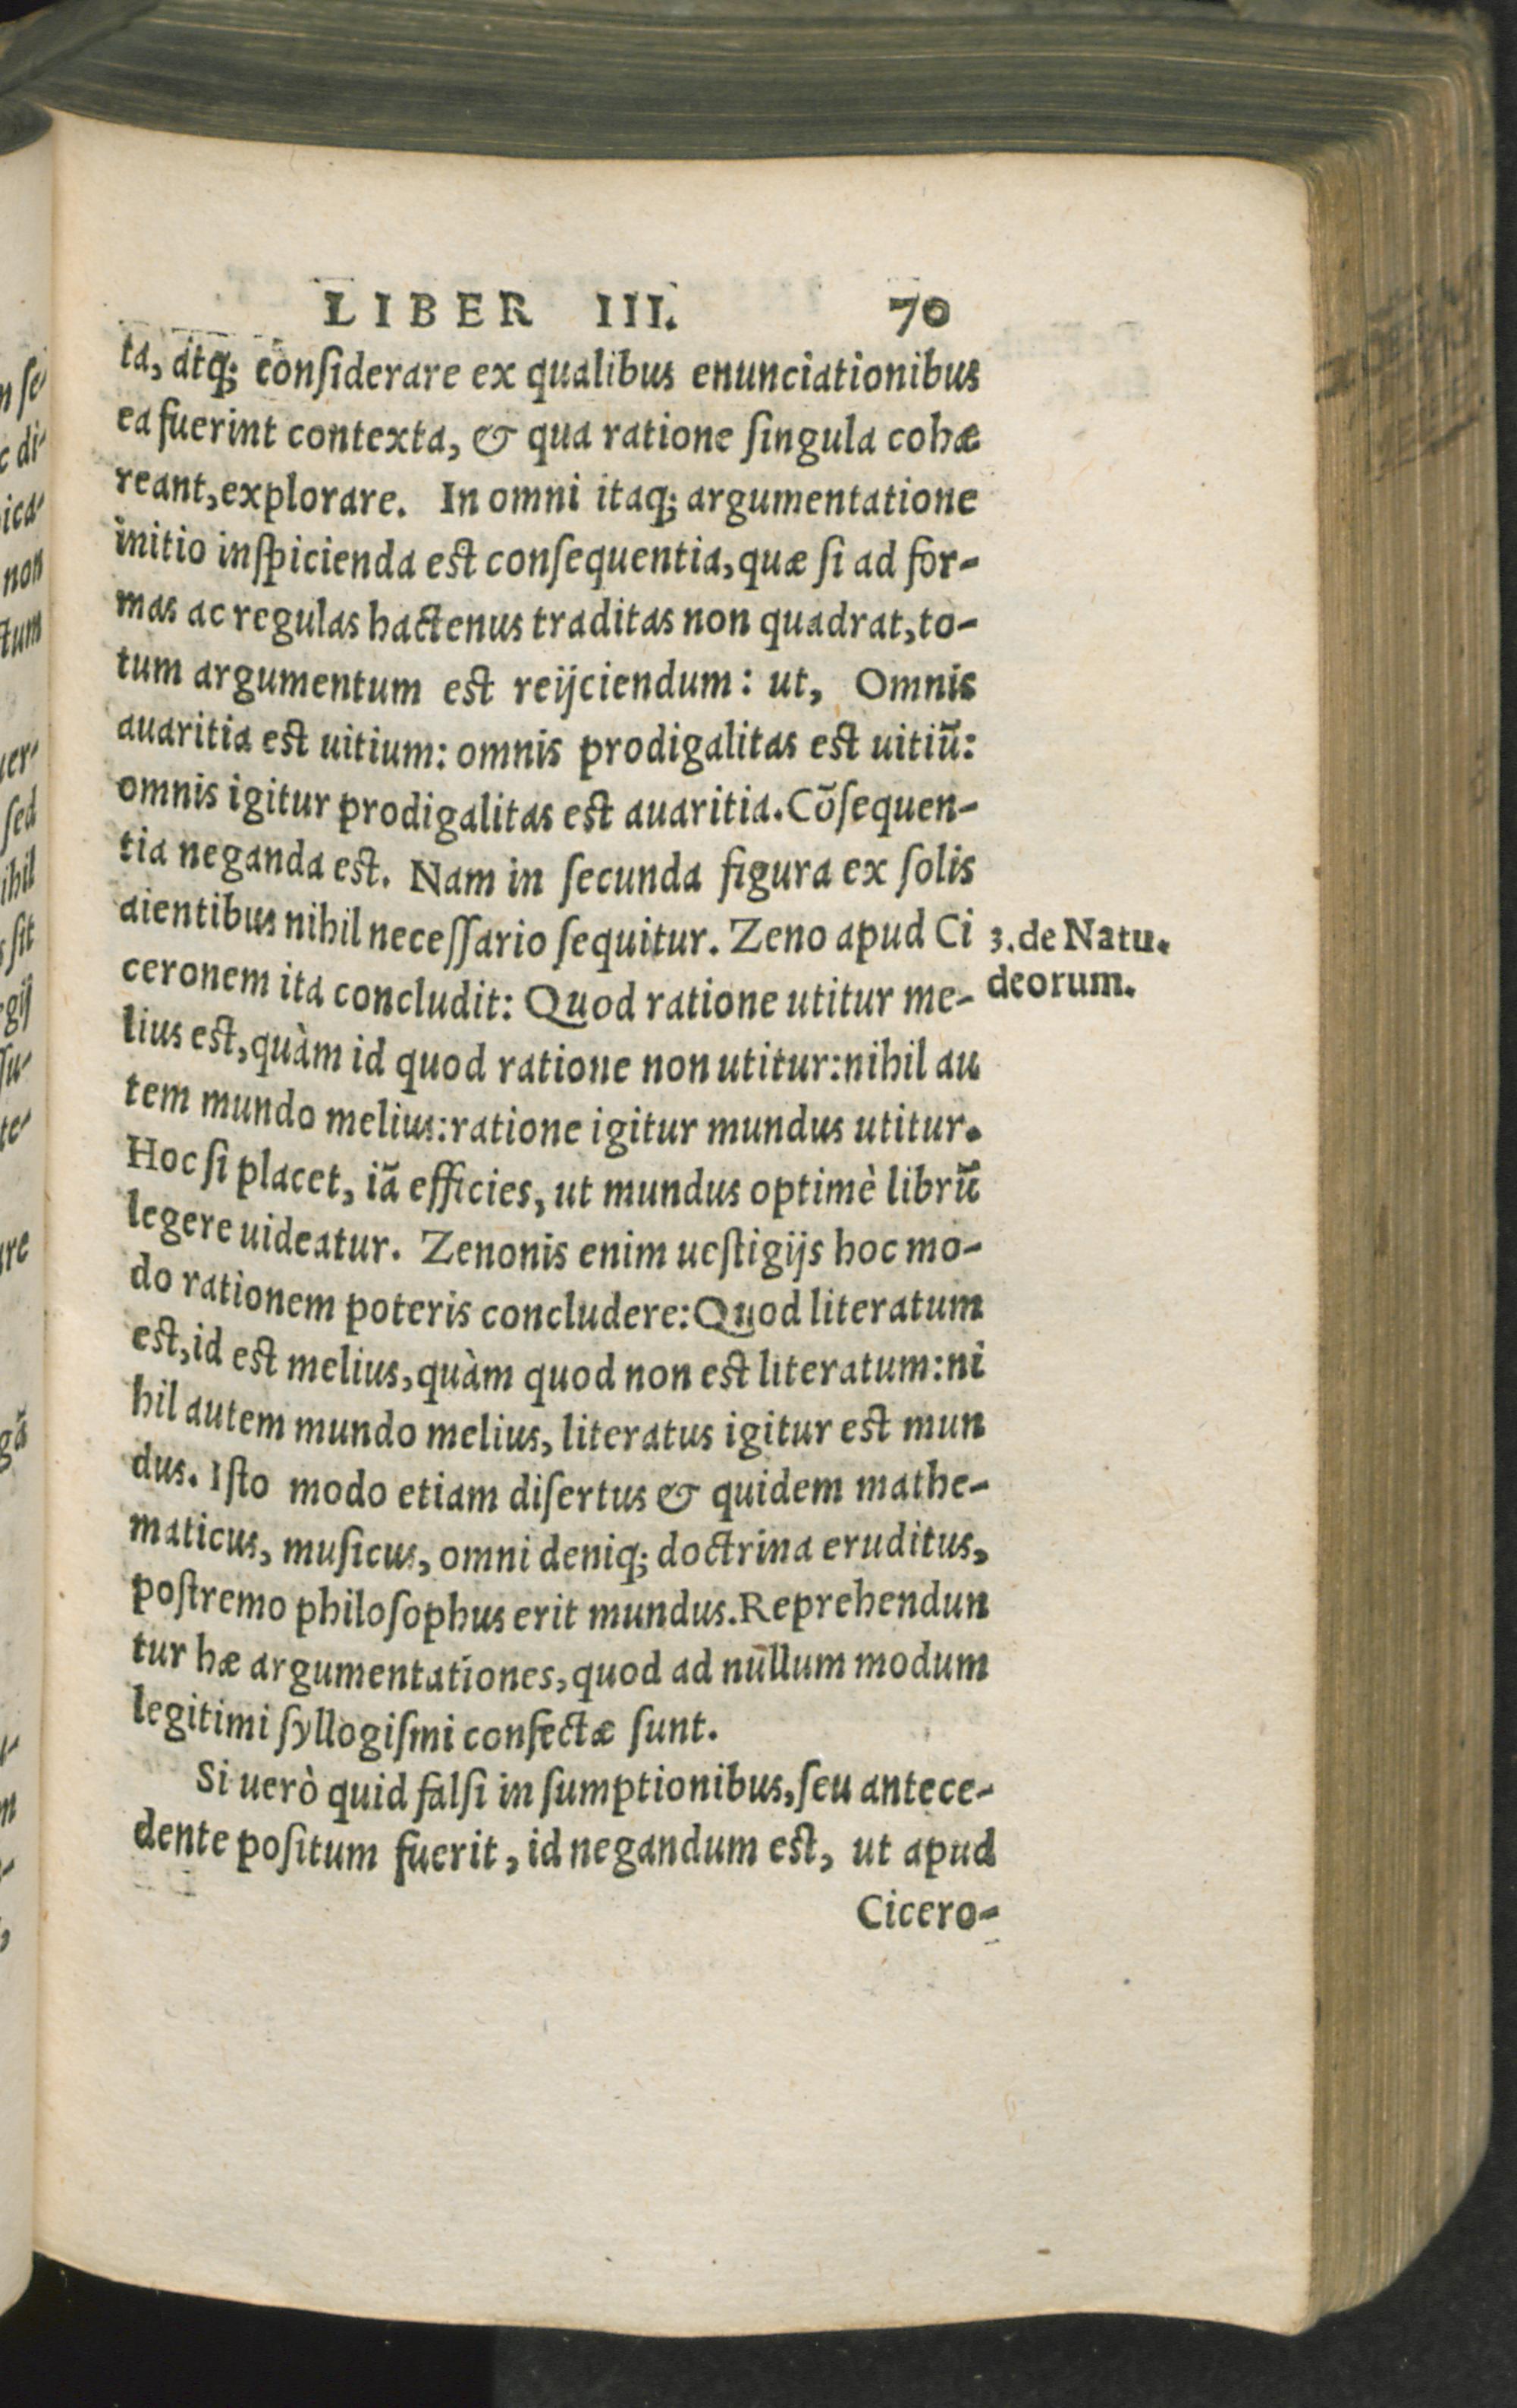 LIBER III. 70
ta, atq; conſiderare ex qualibus enunciationibus
ea fuerint contexta, & qua ratione ſingula cohæ
reant, explorare. In omni itaq; argumentatione
initio inſpicienda est conſequentia, quæ ſi ad for-
mas ac regulas hactenus traditas non quadrat, to-
tum argumentum est reijciendum: ut, Omnis
auaritia est uitium: omnis prodigalitas est uitiũ:
omnis igitur prodigalitas est auaritia. Cõſequen-
tia neganda est. Nam in ſecunda figura ex ſolis
aientibus nihil neceſſario ſequitur. Zeno apud Ci
3. de Natu.
deorum.
ceronem ita concludit: Quod ratione utitur me-
lius est, quàm id quod ratione non utitur: nihil au
tem mundo melius: ratione igitur mundus utitur.
Hoc ſi placet, iã efficies, ut mundus optimè librũ
legere uideatur. Zenonis enim ueſtigijs hoc mo-
do rationem poteris concludere: Quod literatum
est, id est melius, quàm quod non est literatum: ni
hil autem mundo melius, literatus igitur est mun
dus. Iſto modo etiam diſertus & quidem mathe-
maticus, muſicus, omni deniq; doctrina eruditus,
poſtremo philoſophus erit mundus. Reprehendun
tur hæ argumentationes, quod ad nullum modum
legitimi ſyllogiſmi confectæ ſunt.
Si uerò quid falſi in ſumptionibus, ſeu antece-
dente poſitum fuerit, id negandum est, ut apud
Cicero-